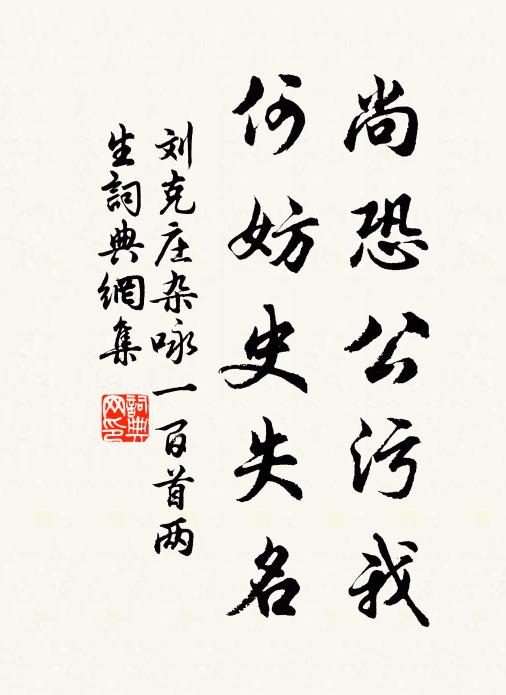 尚恐公污我
何妨史失名
刘克庄杂咏一百首两
生詞典網集
詞典
网印